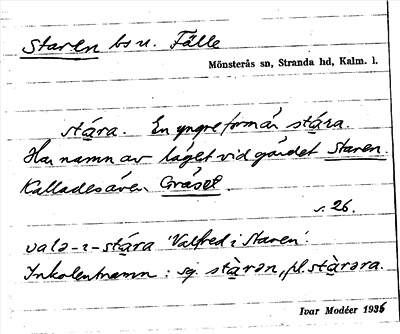 Staren bs u. Fälle
Mönsterås sn, Stranda hd, Kalm. l.
stá̤ra. En yngre form är stá̤ra.
Har namn av läget vid gärdet Staren.
Kallades även Gråset.
s. 26.
valə-ı-stá̤ra 'Valfred i Staren'.
Inkolentnamn: sg. stà̤rən, pl. stà̤rəra.
Ivar Modéer 1936